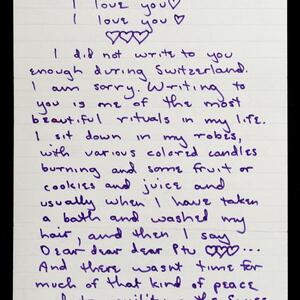 I love you ♡
I love you ♡
♡♡♡
I did not write to you
enough during Switzerland.
I am sorry. Writing to
you is one of the most
beautiful rituals in my life.
I sit down in my robes,
with various colored candles
burning and some fruit or
cookies and juice and
usually when I have taken
a bath and washed my
hair, and then I say
Dear dear dear Ptu ♡♡♡...
And there wasnt time for
much of that kind of peace